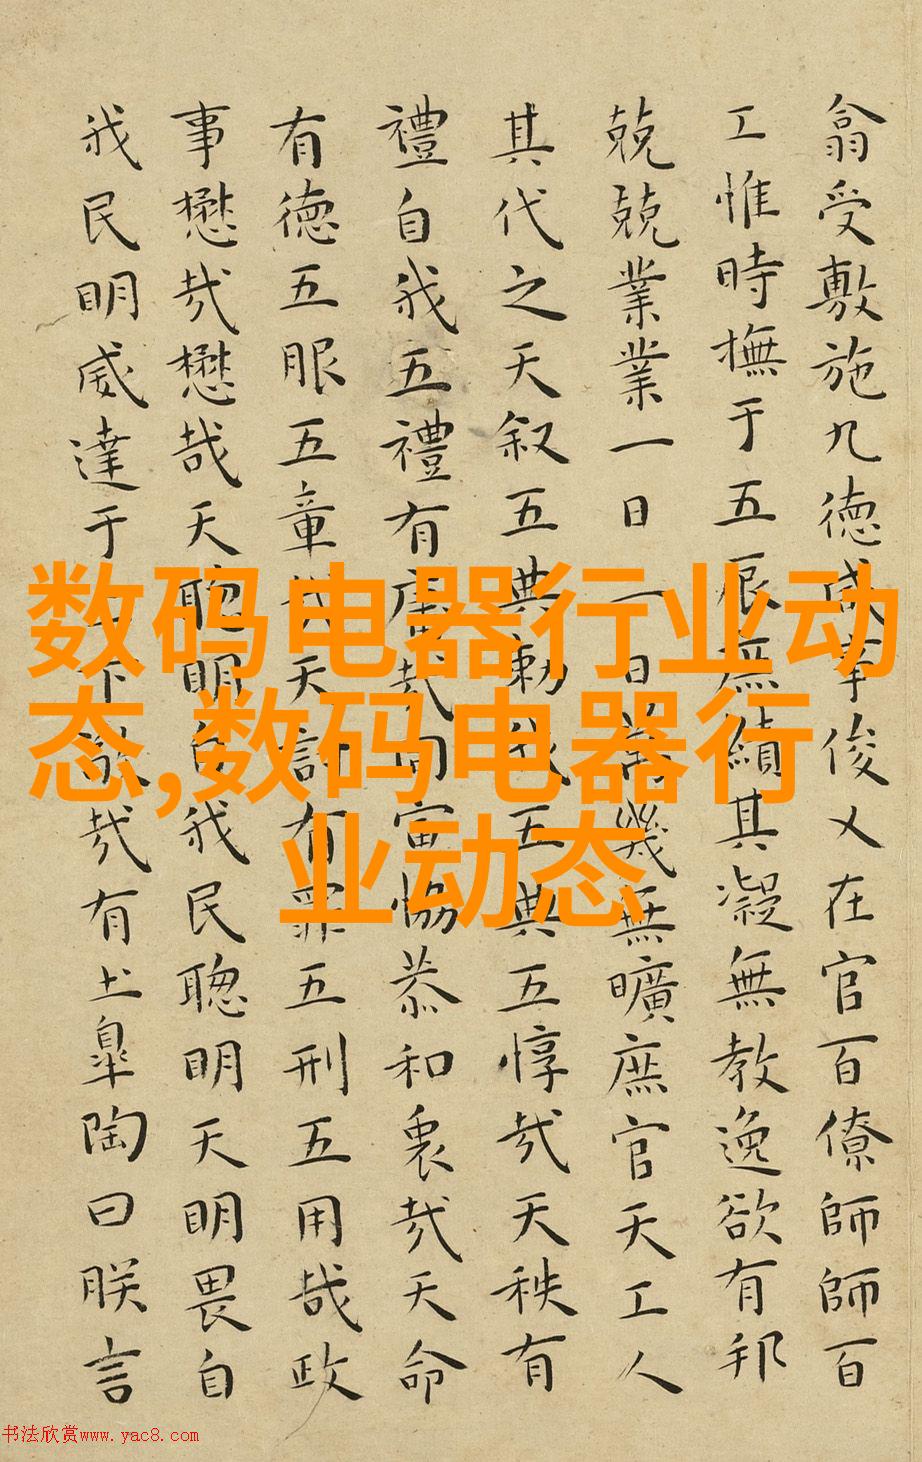 翕受敷施九德咸事俊乂在官百僚師師百
工惟時撫于五辰庶績其凝無教逸欲有邦
兢兢業業一日二日萬幾無曠庶官天工人
其代之天叙五典勅我五典五惇哉天秩有
禮自我五禮有庸哉同寅協恭和衷哉天命
有德五服五章哉天討有罪五刑五用哉政
事懋哉懋哉天聰明自我民聰明天明畏自
我民明威達于上下敬哉有土皐陶曰朕言
数码电器行业动
态,数码电器行
业动态
书法欣赏www.yac8.com